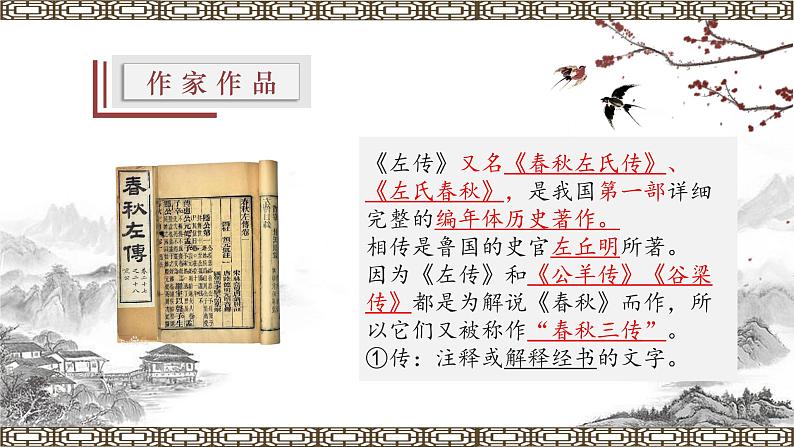 作家作品
《左传》又名《春秋左氏传》、
《左氏春秋》，是我国第一部详细
完整的编年体历史著作。
相传是鲁国的史官左丘明所著。
因为《左传》和《公羊传》《谷梁
传》都是为解说《春秋》而作，所
以它们又被称作“春秋三传”。
①传：注释或解释经书的文字。
春秋左傳
春秋左傳卷一